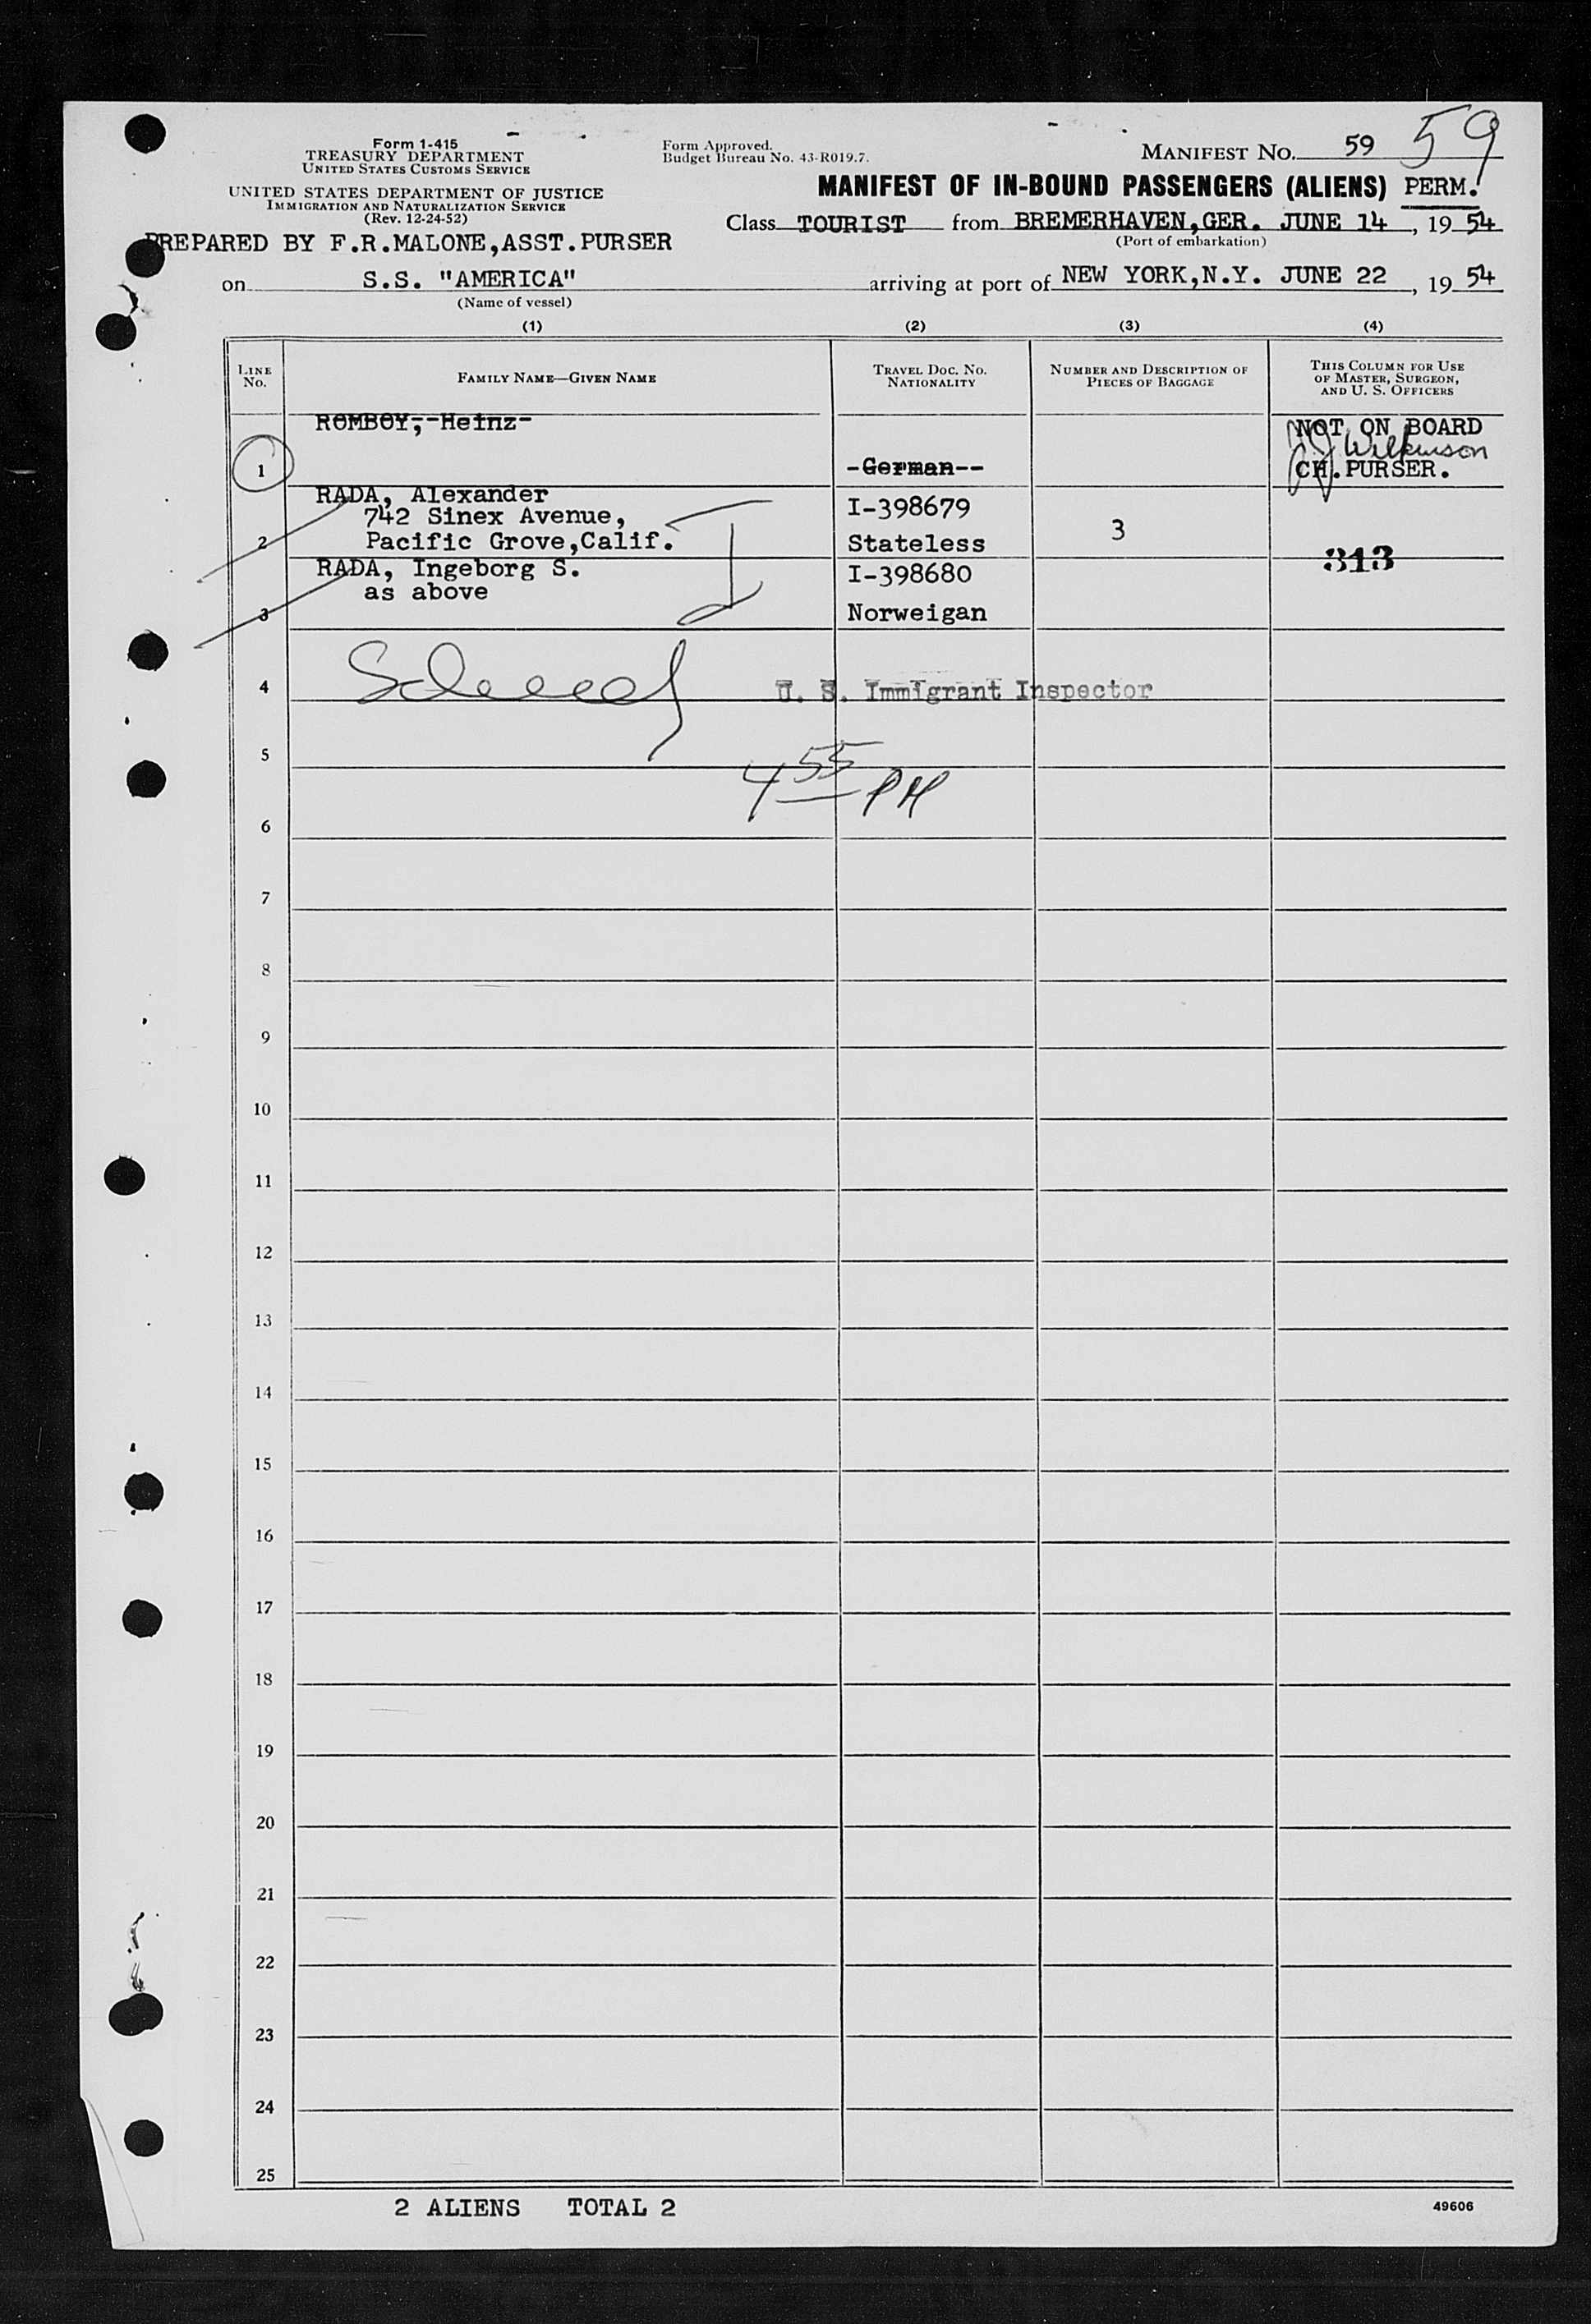 Form 1-415
TREASURY DEPARTMENT
UNITED STATES CUSTOMS SERVICE
UNITED STATES DEPARTMENT OF JUSTICE
IMMIGRATION AND NATURALIZATION SERVICE
(Rev. 12-24-52)
PREPARED BY F.R.MALONE,ASST.PURSER
Form Approved.
Budget Bureau No. 43-R019.7.
MANIFEST NO. 59 59
MANIFEST OF IN-BOUND PASSENGERS (ALIENS) PERM.
Class TOURIST from BREMERHAVEN,GER. JUNE 14, 19 54
(Port of embarkation)
on S.S. "AMERICA" arriving at port of NEW YORK,N.Y. JUNE 22, 19 54
(Name of vessel)
(1) (2) (3) (4)
LINE NO. FAMILY NAME—GIVEN NAME TRAVEL DOC. NO. NATIONALITY NUMBER AND DESCRIPTION OF PIECES OF BAGGAGE THIS COLUMN FOR USE OF MASTER, SURGEON, AND U. S. OFFICERS
ROMBOY,-Heinz- NOT ON BOARD
Wilkinson
1 -German-- CH.PURSER.
RADA, Alexander I-398679
742 Sinex Avenue, 3
2 Pacific Grove,Calif. Stateless
313
RADA, Ingeborg S. I-398680
as above
3 Norweigan
4 U. S. Immigrant Inspector
5
4 55 PM
6
7
8
9
10
11
12
13
14
15
16
17
18
19
20
21
22
23
24
25
2 ALIENS TOTAL 2
49606